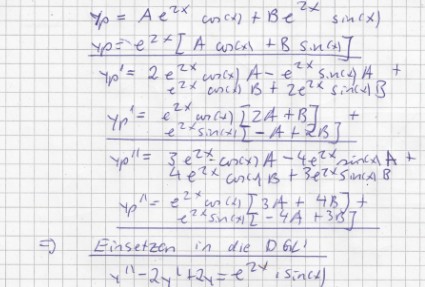 yp = A e^2x cos(x) + B e^2x sin(x)
yp = e^2x [ A cos(x) + B sin(x) ]
yp' = 2 e^2x cos(x) A - e^2x sin(x) A +
e^2x cos(x) B + 2e^2x sin(x) B
yp' = e^2x cos(x) [2A + B] +
e^2x sin(x) [-A + 2B]
yp'' = 3 e^2x cos(x) A - 4 e^2x sin(x) A +
4 e^2x cos(x) B + 3e^2x sin(x) B
yp'' = e^2x cos(x) [3A + 4B] +
e^2x sin(x) [-4A + 3B]
=> Einsetzen in die DGL!
y'' - 2y' + 2y = e^2x · sin(x)